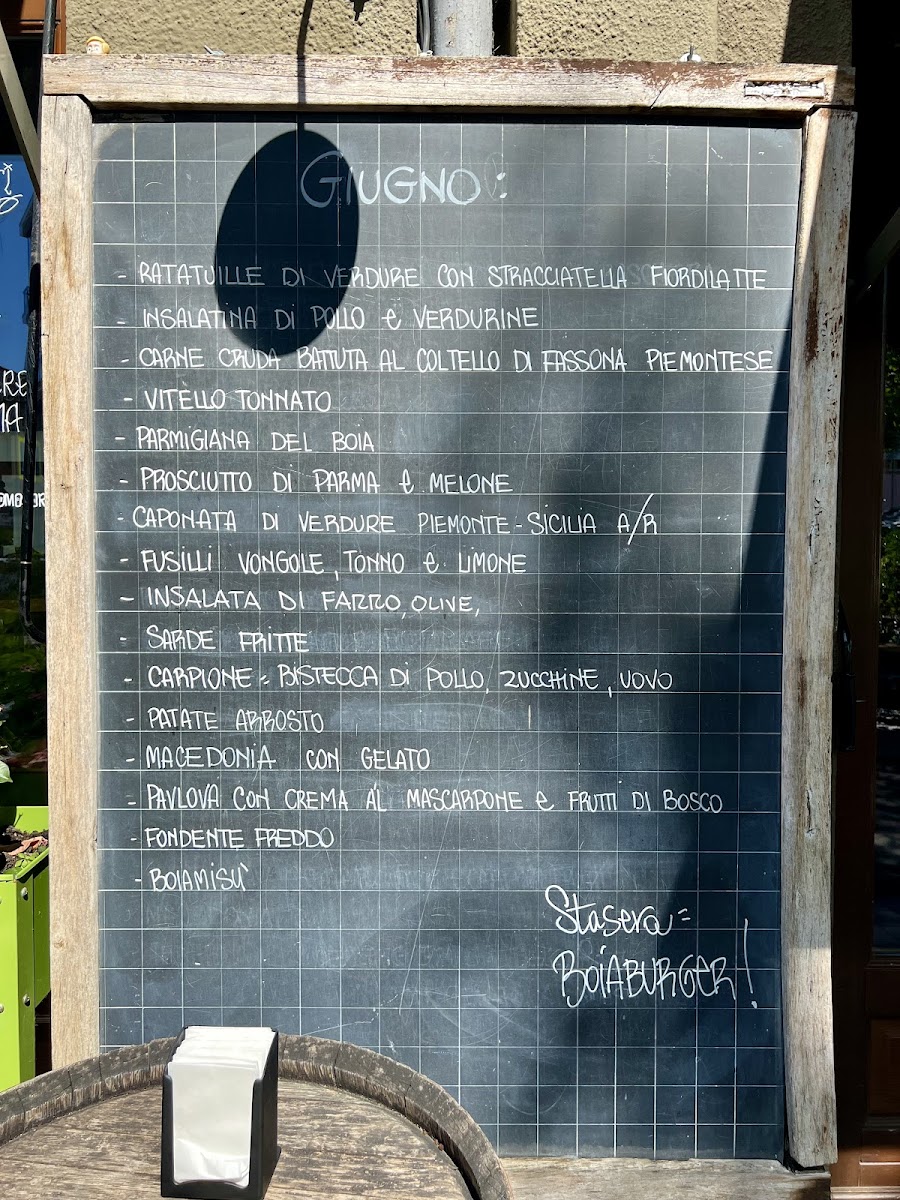 GIUGNO:
- RATATUILLE DI VERDURE CON STRACCIATELLA FIORDILATTE
- INSALATINA DI POLLO e VERDURINE
- CARNE CRUDA BATTUTA AL COLTELLO DI FASSONA PIEMONTESE
- VITELLO TONNATO
- PARMIGIANA DEL BOIA
- PROSCIUTTO DI PARMA e MELONE
- CAPONATA DI VERDURE PIEMONTE-SICILIA A/R
- FUSILLI VONGOLE, TONNO e LIMONE
- INSALATA DI FARRO, OLIVE,
- SARDE FRITTE
- CARPIONE = BISTECCA DI POLLO, ZUCCHINE, UOVO
- PATATE ARROSTO
- MACEDONIA CON GELATO
- PAVLOVA CON CREMA AL MASCARPONE e FRUTTI DI BOSCO
- FONDENTE FREDDO
- BOIAMISU'
Stasera =
BOIABURGER!